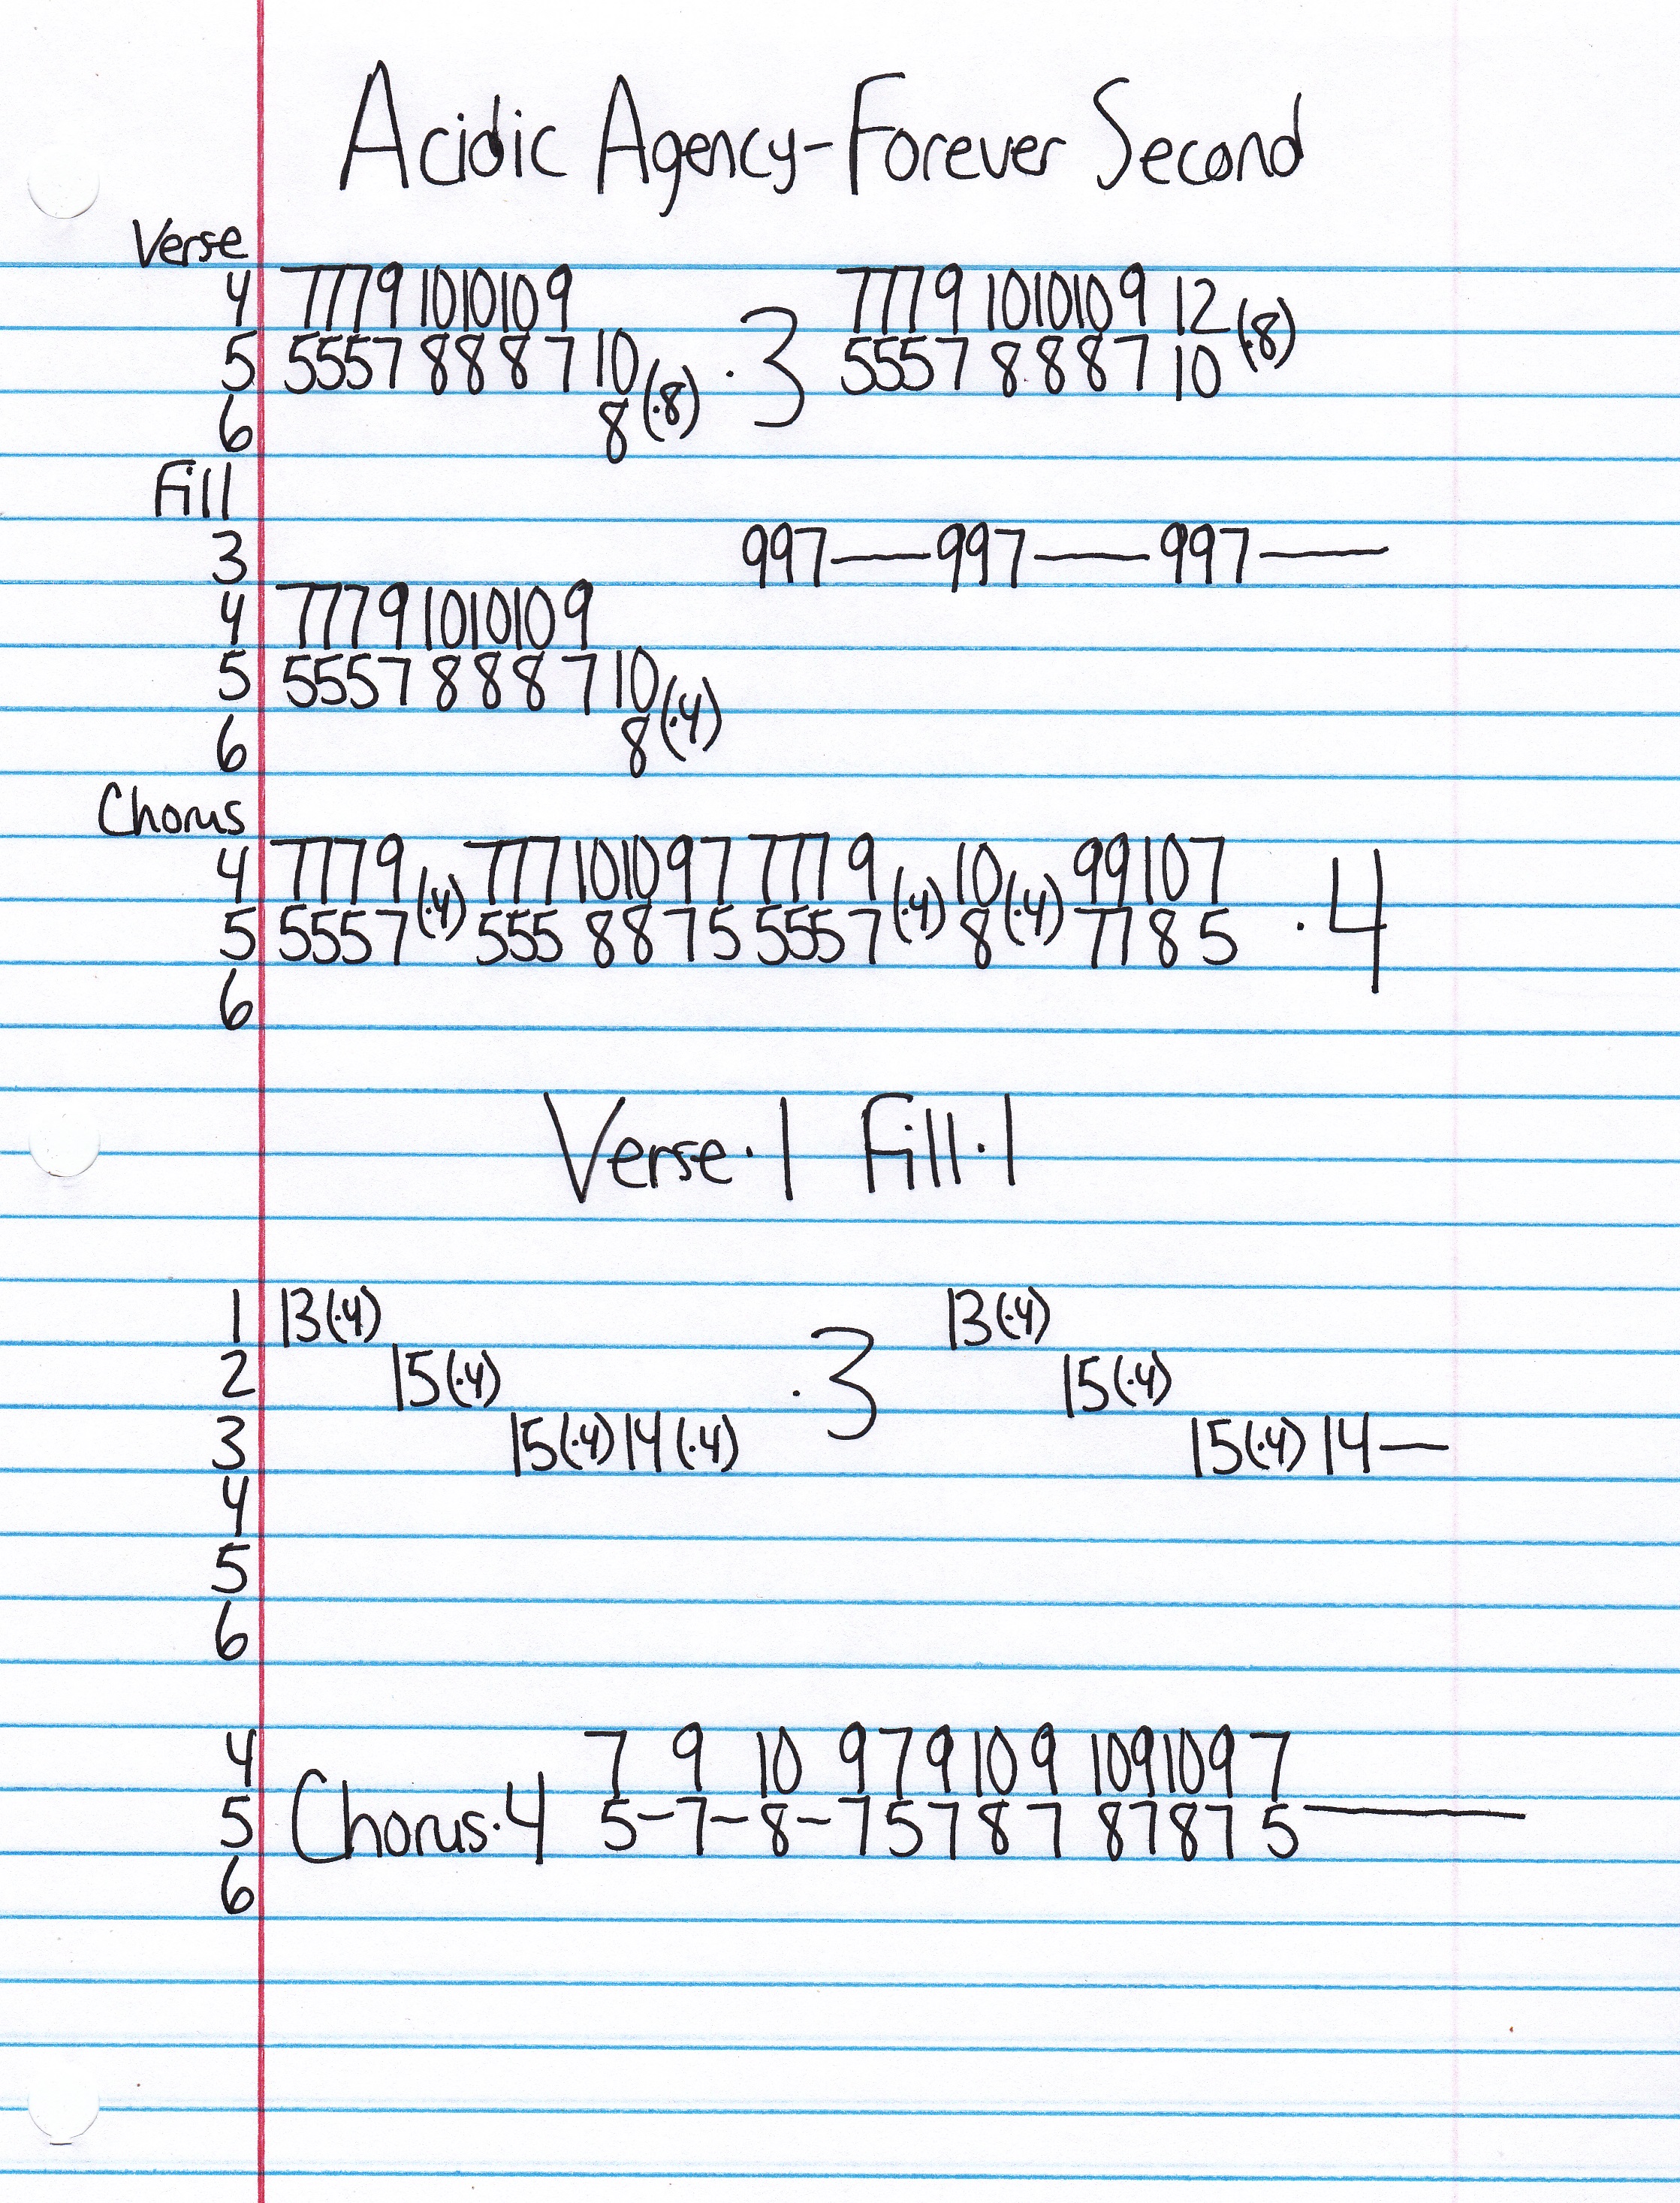 Acidic Agency-Forever Second
Verse
4 7779 1010109 7779 1010109 12
5 5557 8887 10 (·8) ·3 5557 8887 10 (·8)
6 8
Fill
3 997——997——997——
4 7779 1010109
5 5557 8887 10
6 8(·4)
Chorus
4 7779 777 1010 97 7779 10 99107
5 5557(·4) 555 8875 5557(·4) 8(·4) 7785 ·4
6
Verse·1 Fill·1
1 13(·4) 13(·4)
2 15(·4) ·3 15(·4)
3 15(·4)14(·4) 15(·4)14—
4
5
6
4 7 9 10 9 7 9 10 9 10 9 10 9 7
5 Chorus·4 5–7–8–7 5 7 8 7 8 7 8 7 5——
6